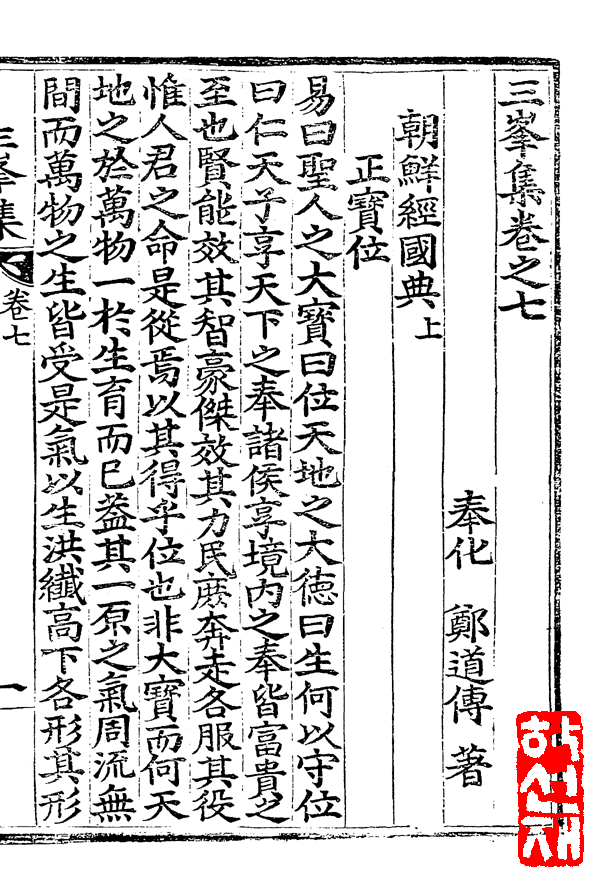 三峯集卷之七
奉化 鄭道傳 著
朝鮮經國典上
正寶位
易曰聖人之大寶曰位天地之大德曰生何以守位
曰仁天子享天下之奉諸侯享境內之奉皆富貴之
至也賢能效其智豪傑效其力民庶奔走各服其役
惟人君之命是從焉以其得乎位也非大寶而何天
地之於萬物一於生育而已葢其一原之氣周流無
間而萬物之生皆受是氣以生洪纖高下各形其形
三峯集 卷七 一
학선재